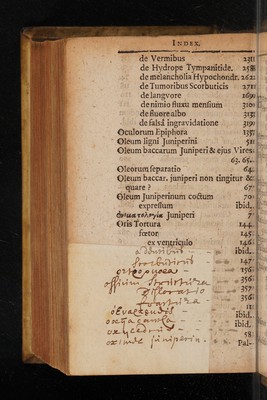 INDEX.
de Vermibus 231.
de Hydrope Tympanitide. 258.
de melancholia Hypochondr. 262.
de Tumoribus Scorbuticis 278.
de langvore 169.
de nimio fluxu mensium 310.
de fluore albo 313.
de falsâ ingravidatione 319.
Oculorum Epiphora 135.
Oleum ligni Juniperini 51.
Oleum baccarum Juniperi & ejus Vires.
63. 65.
Oleorum separatio 64.
Oleum baccar. juniperi non tingitur &
quare? 67.
Oleum Juniperinum coctum 70.
expressum ibid.
Juniperi 7.
Oris Tortura 144.
fœtor 145.
ex ventriculo 146.
ibid.
scorbuticus 147.
156.
officium 356.
357.
fractura 356.
11.
ibid.
ibid.
juniperin. 58.
Pal-